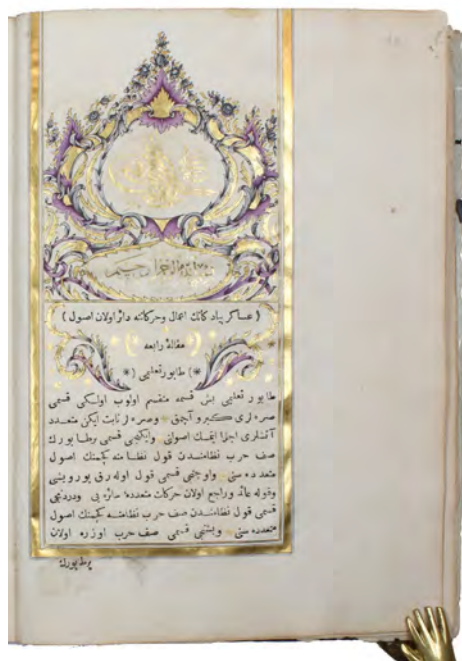 بسم الله الرحمن الرحيم
( عساكر پيادكانك اعمال و حركاتنه دائر اولان اصول )
مقالهٔ رابعه
(*) طابور تعليمى (*)
طابور تعليمى بش قسمه منقسم اولوب اولكى قسمى
صره لرى كيرو آچمق وصره لر ثابت ايكن متعدد
آتشلرى اجرا ايتمك اصولنى وايكنجى قسمى بر طابورك
صف حرب نظامندن قول نظامنه كچمنك اصول
متعدده سنى واوچنجى قسمى قول اوله رق يورويشى
وقوله عائد وراجع اولان حركات متعددهٔ سائره يى ودردنجى
قسمى قول نظامندن صف حرب نظامنه كچمنك اصول
متعدده سنى وبشنجى قسمى صف حرب اوزره اولان
بر طابورك